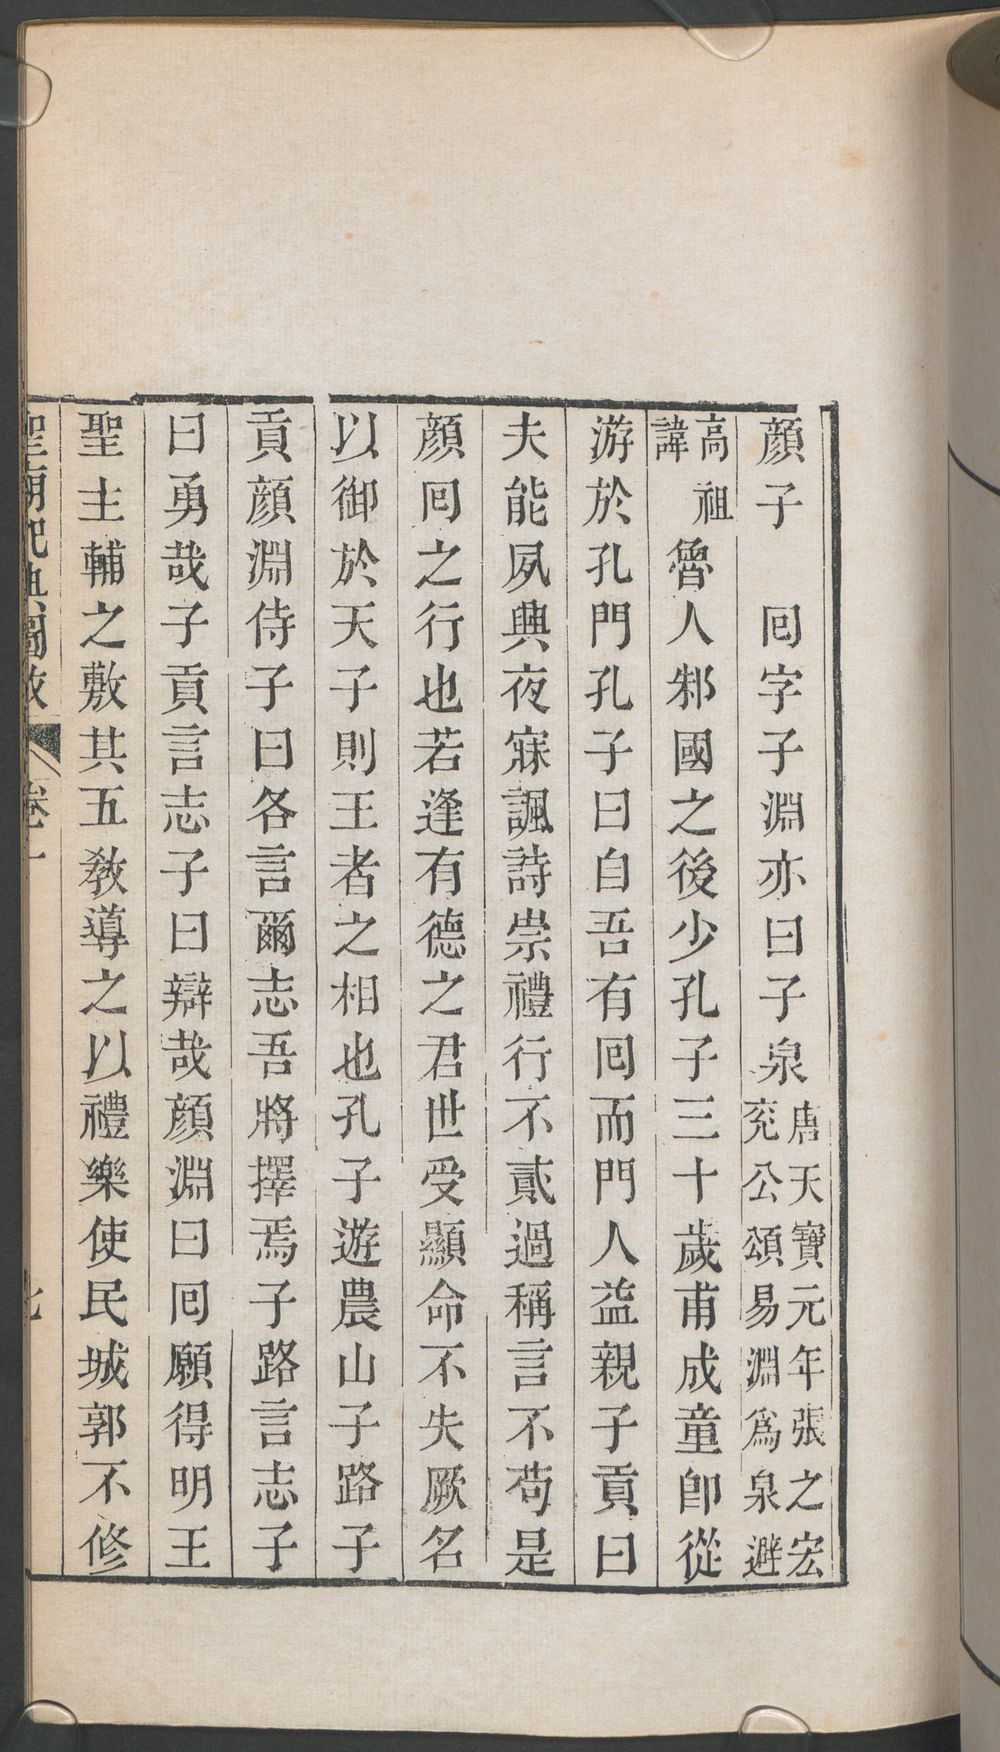 顔子　囘字子淵亦曰子泉唐天寶元年張之宏兖公頌易淵爲泉避
高祖諱魯人邾國之後少孔子三十歲甫成童卽從
游於孔門孔子曰自吾有囘而門人益親子貢曰
夫能夙興夜寐諷詩崇禮行不貳過稱言不苟是
顔囘之行也若逢有德之君世受顯命不失厥名
以御於天子則王者之相也孔子遊農山子路子
貢顔淵侍子曰各言爾志吾將擇焉子路言志子
曰勇哉子貢言志子曰辯哉顔淵曰囘願得明王
聖主輔之敷其五敎導之以禮樂使民城郭不修
聖廟祀典圖攷　卷一　七